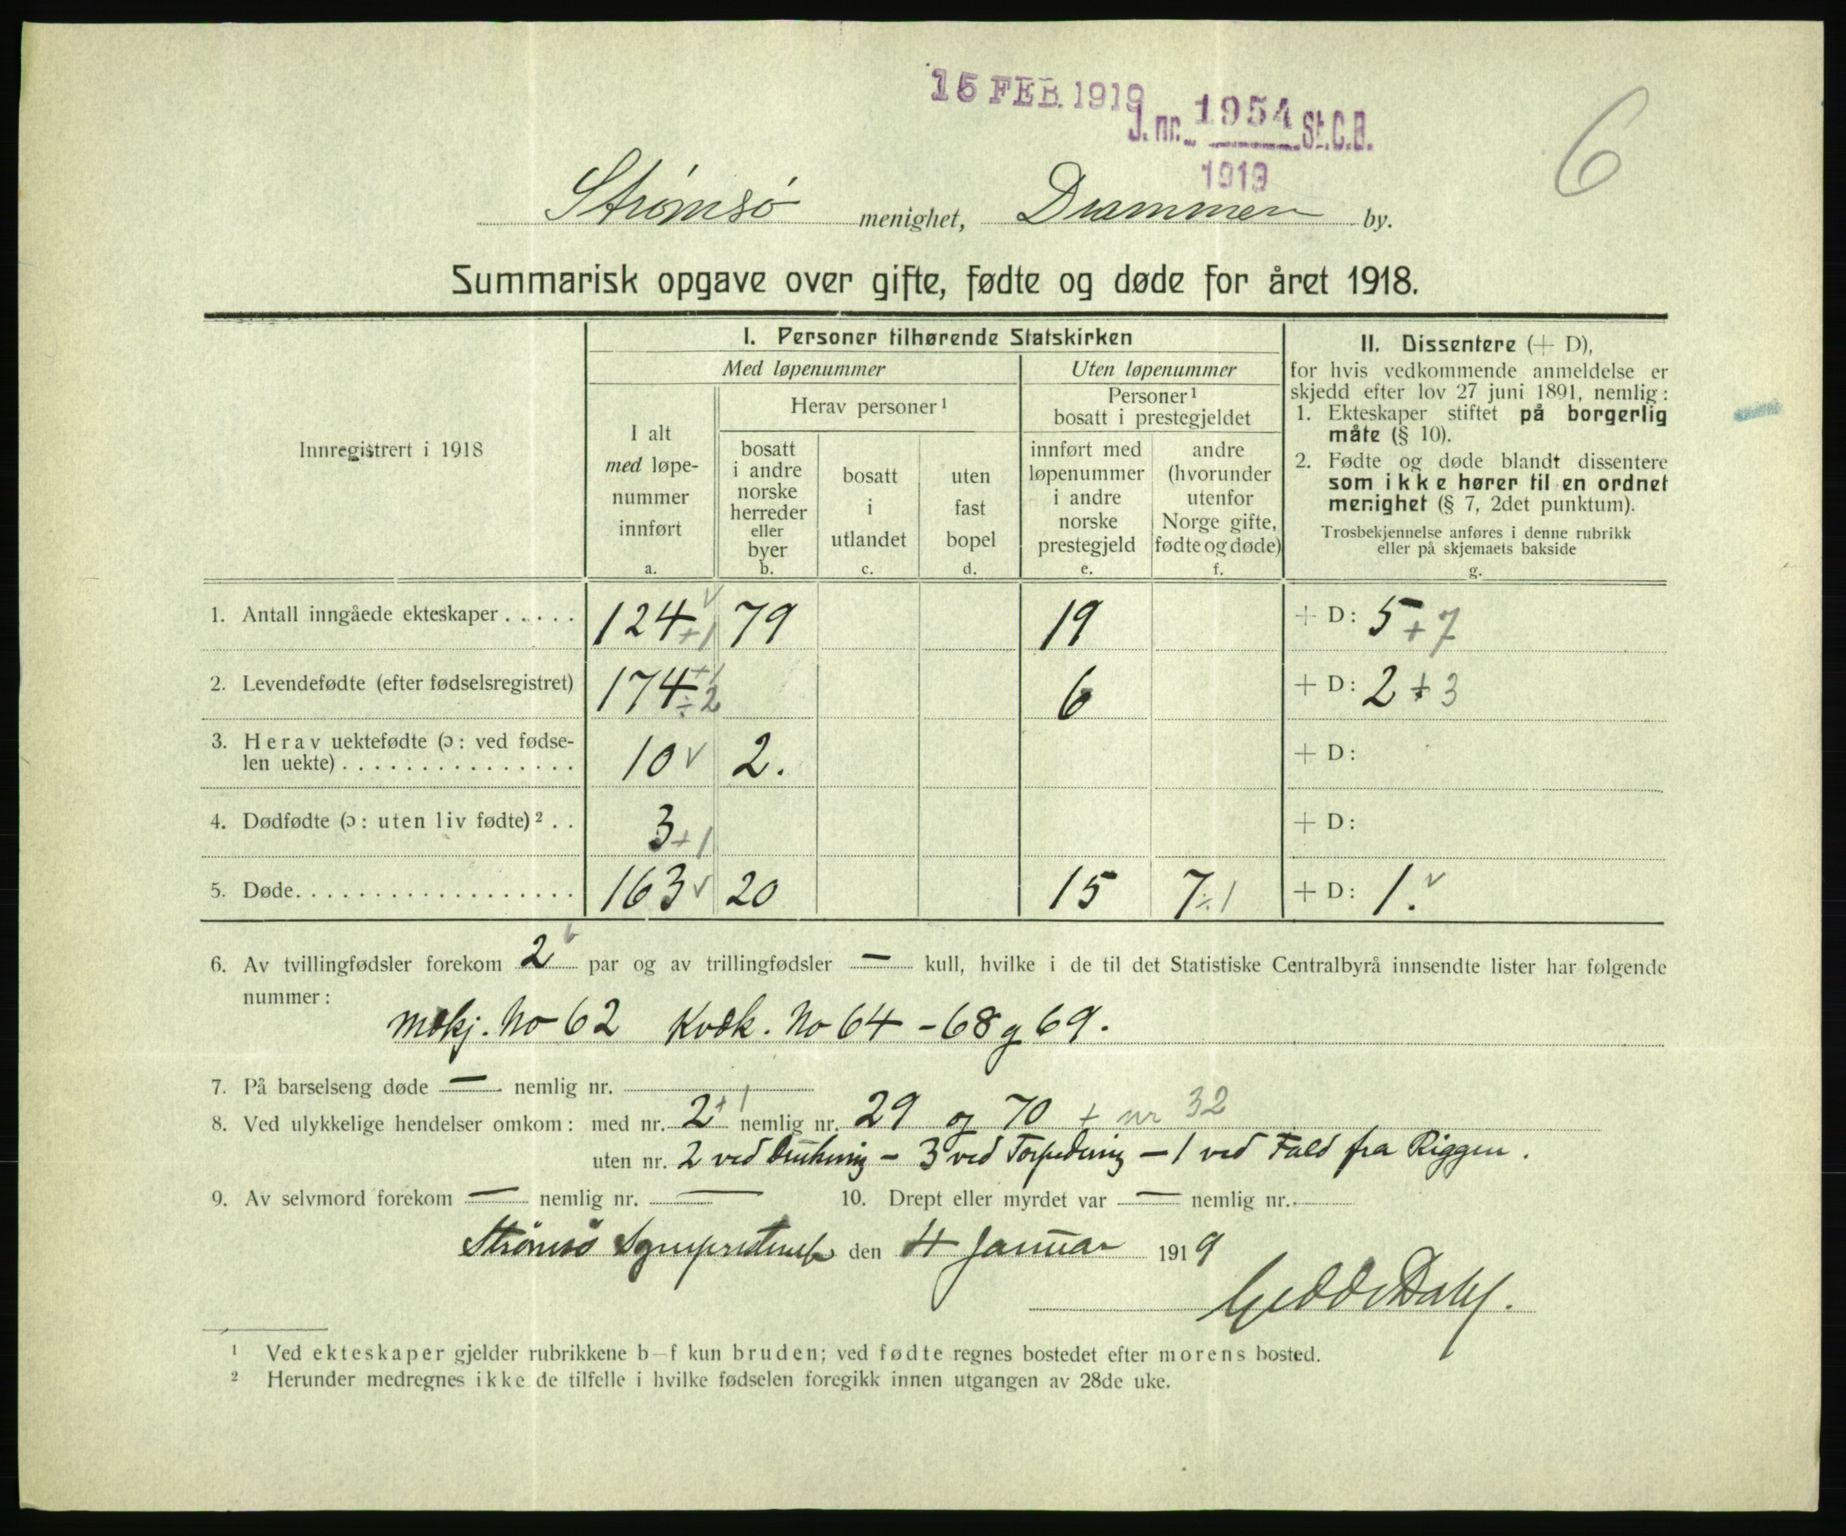 15 FEB. 1919
J. nr. 1954 St.C.B.
1919
6
Strømsø menighet, Drammen by.
Summarisk opgave over gifte, fødte og døde for året 1918.
Innregistrert i 1918
I. Personer tilhørende Statskirken
Med løpenummer
Uten løpenummer
I alt
med løpe-
nummer
innført
a.
Herav personer ¹
bosatt
i andre
norske
herreder
eller
byer
b.
bosatt
i
utlandet
c.
uten
fast
bopel
d.
Personer ¹
bosatt i prestegjeldet
innført med
løpenummer
i andre
norske
prestegjeld
e.
andre
(hvorunder
utenfor
Norge gifte,
fødte og døde)
f.
II. Dissentere (+ D),
for hvis vedkommende anmeldelse er
skjedd efter lov 27 juni 1891, nemlig:
1. Ekteskaper stiftet på borgerlig
måte (§ 10).
2. Fødte og døde blandt dissentere
som ikke hører til en ordnet
menighet (§ 7, 2det punktum).
Trosbekjennelse anføres i denne rubrikk
eller på skjemaets bakside
g.
1. Antall inngåede ekteskaper . . . . . 124 + 1 79 19 + D: 5 + 7
2. Levendefødte (efter fødselsregistret) 174 + 1 ÷ 2 6 + D: 2 + 3
3. Herav uektefødte (ɔ: ved fødse-
len uekte) . . . . . . . . . . . . . . . 10 v 2. + D:
4. Dødfødte (ɔ: uten liv fødte) ² . . 3 + 1 + D:
5. Døde. . . . . . . . . . . . . . . . . . 163 v 20 15 7 ÷ 1 + D: 1. v
6. Av tvillingfødsler forekom 2 par og av trillingfødsler — kull, hvilke i de til det Statistiske Centralbyrå innsendte lister har følgende
nummer:
Mskj. No 62 Kvdk. No 64 – 68 og 69.
7. På barselseng døde — nemlig nr.
8. Ved ulykkelige hendelser omkom: med nr. 2 + 1 nemlig nr. 29 og 70 + nr 32
uten nr. 2 ved Drukning – 3 ved Torpedering – 1 ved Fald fra Riggen.
9. Av selvmord forekom — nemlig nr. — 10. Drept eller myrdet var — nemlig nr.
Strømsø den 4 Januar 1919
Gedde Dahl.
¹ Ved ekteskaper gjelder rubrikkene b–f kun bruden; ved fødte regnes bostedet efter morens bosted.
² Herunder medregnes ikke de tilfelle i hvilke fødselen foregikk innen utgangen av 28de uke.